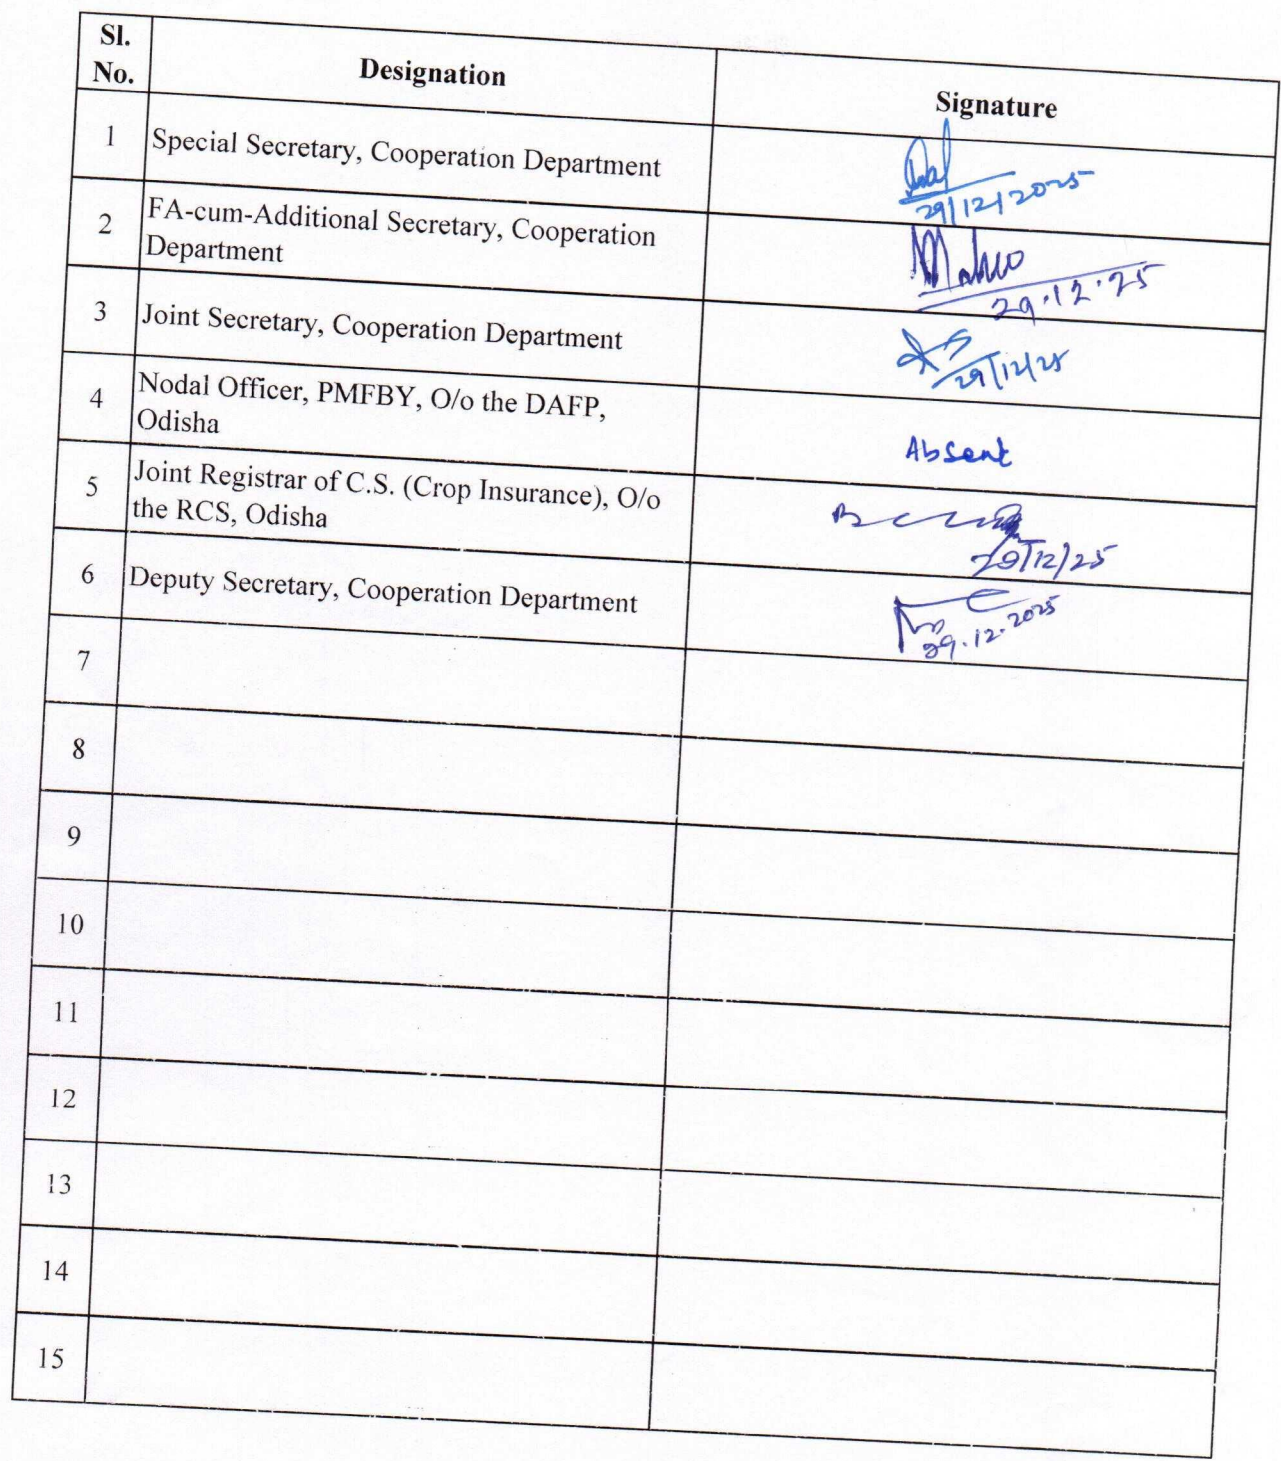 Sl. No. Designation Signature
1 Special Secretary, Cooperation Department 29/12/2025
2 FA-cum-Additional Secretary, Cooperation
Department 29.12.25
3 Joint Secretary, Cooperation Department 29/12/25
4 Nodal Officer, PMFBY, O/o the DAFP,
Odisha Absent
5 Joint Registrar of C.S. (Crop Insurance), O/o
the RCS, Odisha 29/12/25
6 Deputy Secretary, Cooperation Department 29.12.2025
7
8
9
10
11
12
13
14
15